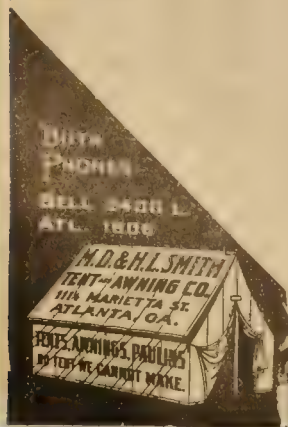 BOTH
PHONES
BELL
ATL.
M.D. & H.L. SMITH
TENT AND AWNING CO.
111½ MARIETTA ST.
ATLANTA, GA.
TENTS, AWNINGS, PAULINS
NO TENT WE CANNOT MAKE.